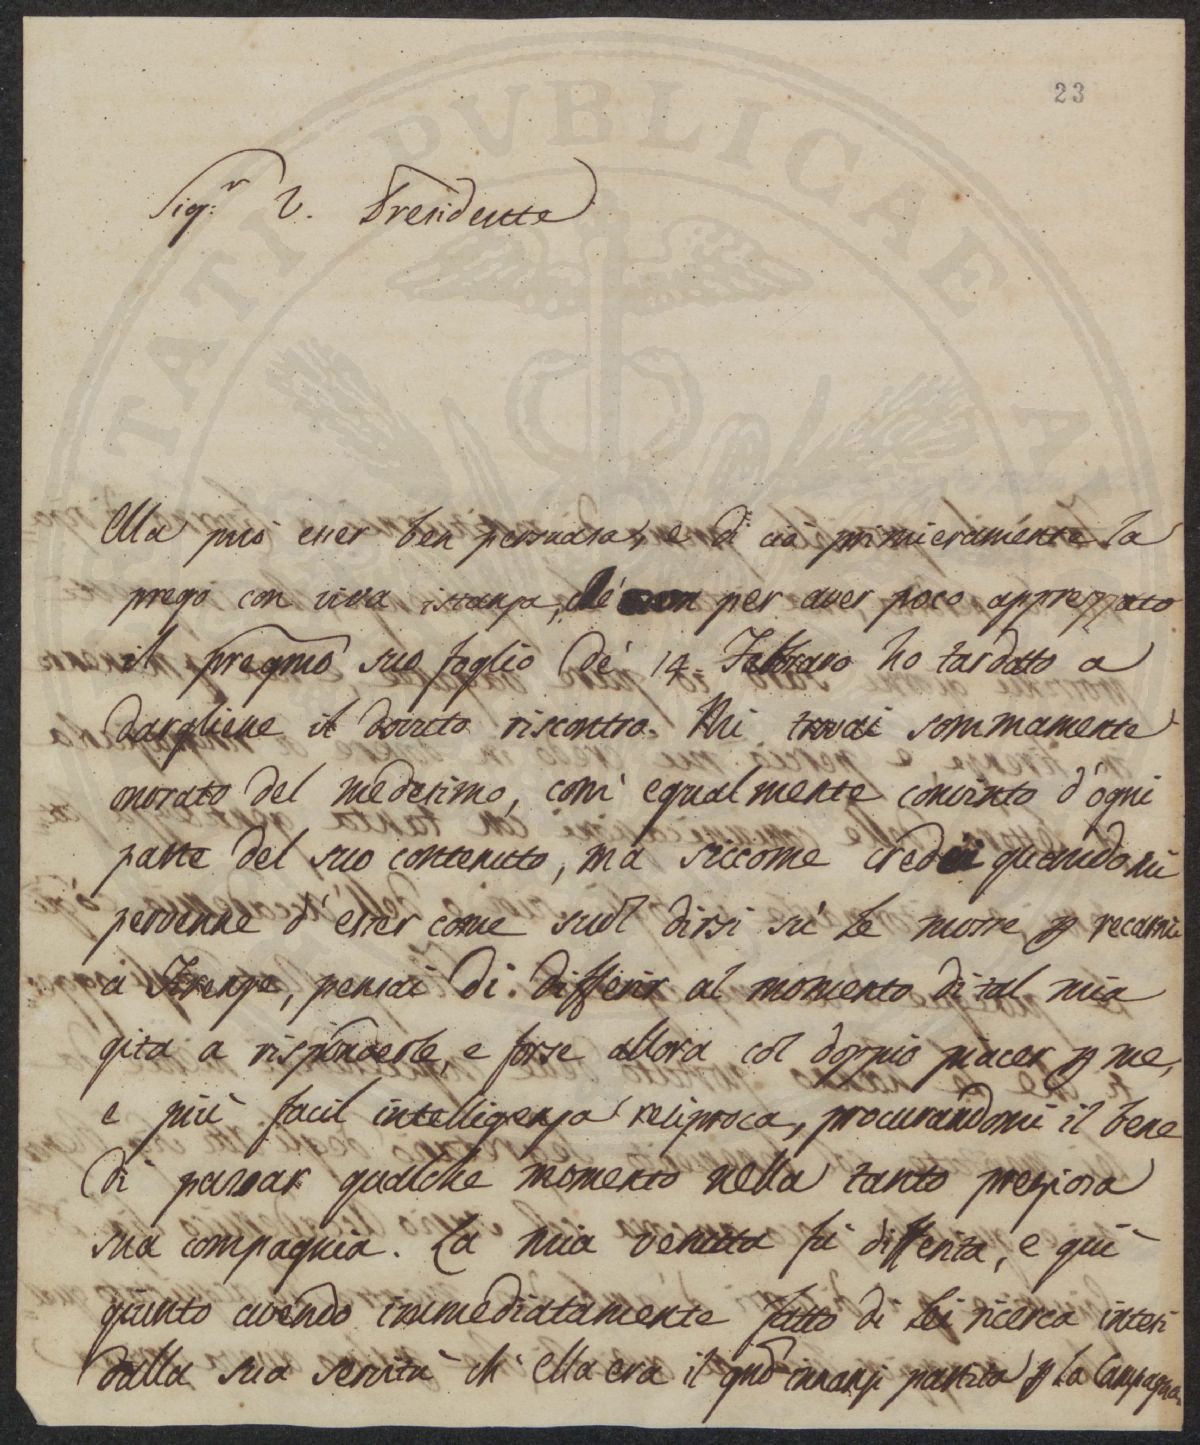 23
Sig.r V. Presidente
Ella può esser ben persuasa, e di ciò primieramente la
prego con viva istanza, che non per aver poco apprezzato
il pregmo suo foglio de' 14. Febbraro ho tardato a
dargliene il dovuto riscontro. Mi trovai sommamente
onorato del medesimo, com' equalmente convinto d'ogni
parte del suo contenuto, ma siccome credei quando mi
pervenne d'esser come suol dirsi sù le mosse p recarmi
a Firenze, pensai di differir al momento di tal mia
gita a risponderle, e forse allora col doppio piacer p me,
e più facil intelligenza reciproca, procurandomi il bene
di passar qualche momento nella tanto preziosa
sua compagnia. La mia venuta fù differita, e quì
giunto avendo immediatamente fatto di Lei ricerca intesi
dalla sua servitù ch' Ella era il gno innanzi partita p la Campagna.
PVBLICAE